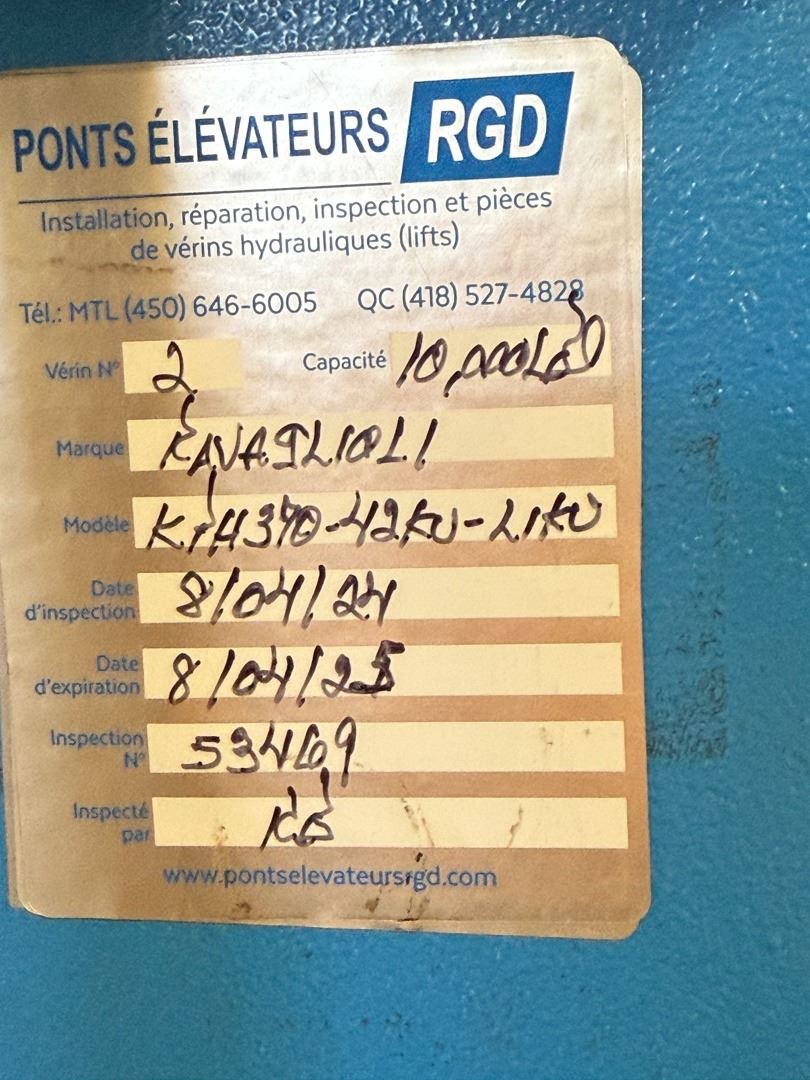 PONTS ÉLÉVATEURS RGD
Installation, réparation, inspection et pièces
de vérins hydrauliques (lifts)
Tél.: MTL (450) 646-6005 QC (418) 527-4828
Vérin N° 2 Capacité 10,000
Marque RAVAGLIOLI
Modèle
Date
d'inspection 8/04/24
Date
d'expiration 8/04/25
Inspection
N° 53469
Inspecté
par
www.pontselevateursrgd.com